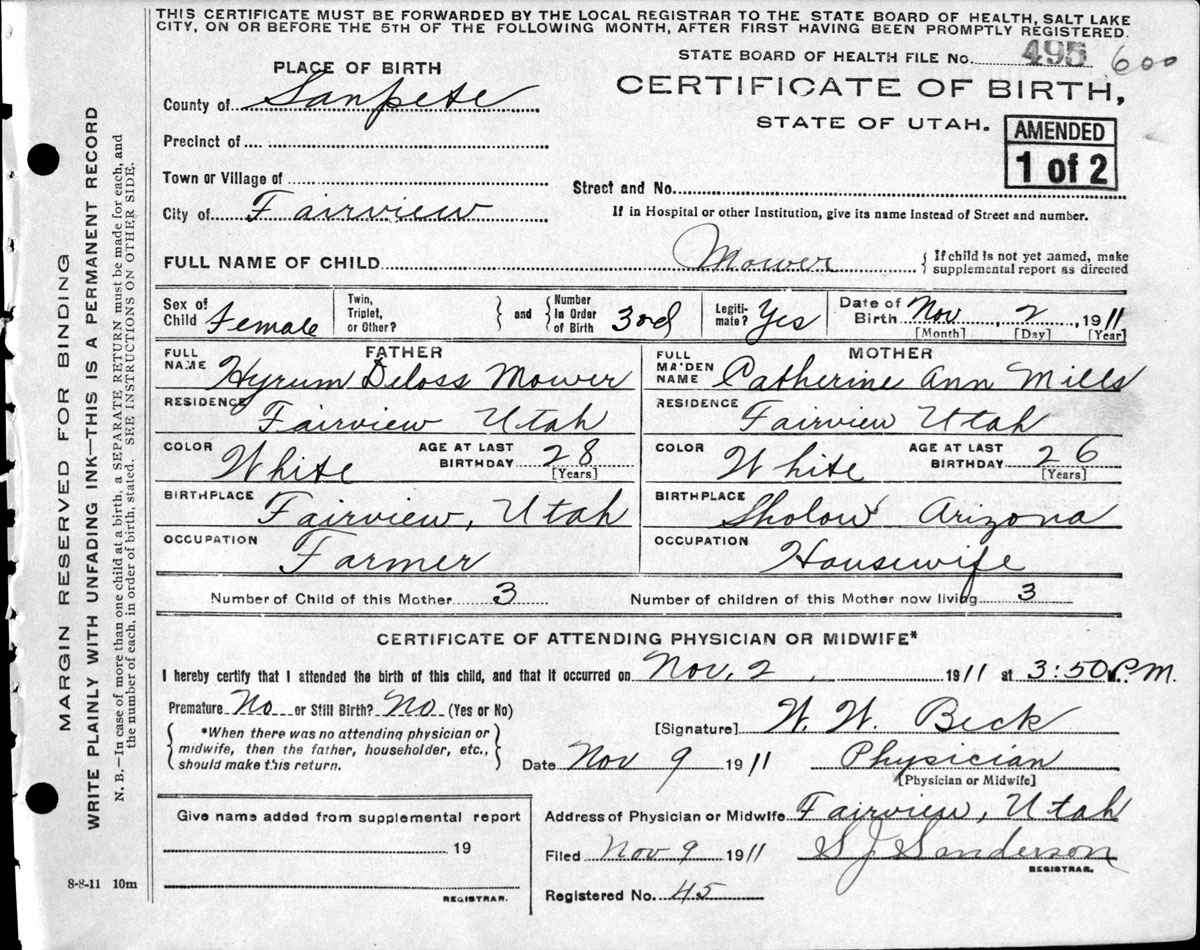 THIS CERTIFICATE MUST BE FORWARDED BY THE LOCAL REGISTRAR TO THE STATE BOARD OF HEALTH, SALT LAKE
CITY, ON OR BEFORE THE 5TH OF THE FOLLOWING MONTH, AFTER FIRST HAVING BEEN PROMPTLY REGISTERED.
STATE BOARD OF HEALTH FILE No. 495 600
PLACE OF BIRTH
CERTIFICATE OF BIRTH,
STATE OF UTAH.
AMENDED
1 of 2
County of Sanpete
Precinct of
Town or Village of
Street and No.
City of Fairview
If in Hospital or other Institution, give its name instead of Street and number.
FULL NAME OF CHILD Mower { If child is not yet named, make
supplemental report as directed
Sex of Child Female
Twin, Triplet, or Other? } and { Number In Order of Birth 3rd
Legiti-mate? Yes
Date of Birth Nov 2, 1911
[Month] [Day] [Year]
FATHER
FULL NAME Hyrum Deloss Mower
RESIDENCE Fairview Utah
COLOR White AGE AT LAST BIRTHDAY 28
[Years]
BIRTHPLACE Fairview, Utah
OCCUPATION Farmer
MOTHER
FULL MAIDEN NAME Catherine Ann Mills
RESIDENCE Fairview Utah
COLOR White AGE AT LAST BIRTHDAY 26
[Years]
BIRTHPLACE Sholow Arizona
OCCUPATION Housewife
Number of Child of this Mother 3 Number of children of this Mother now living 3
CERTIFICATE OF ATTENDING PHYSICIAN OR MIDWIFE*
I hereby certify that I attended the birth of this child, and that it occurred on Nov. 2, 1911 at 3:50 P.M.
Premature No or Still Birth? No (Yes or No)
{ *When there was no attending physician or
midwife, then the father, householder, etc.,
should make this return. }
[Signature] W. W. Beck
Date Nov 9 1911 Physician
[Physician or Midwife]
Give name added from supplemental report
19
REGISTRAR.
Address of Physician or Midwife Fairview, Utah
Filed Nov 9 1911 S J Sanderson
REGISTRAR.
Registered No. 45
8-8-11 10m
MARGIN RESERVED FOR BINDING
WRITE PLAINLY WITH UNFADING INK—THIS IS A PERMANENT RECORD
N. B.—In case of more than one child at a birth, a SEPARATE RETURN must be made for each, and
the number of each, in order of birth, stated. SEE INSTRUCTIONS ON OTHER SIDE.